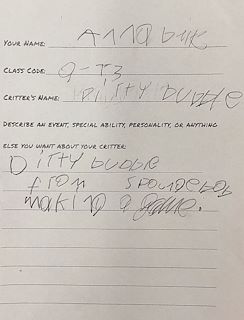 YOUR NAME: Anna
CLASS CODE: 9-T3
CRITTER'S NAME: Dirty bubble
DESCRIBE AN EVENT, SPECIAL ABILITY, PERSONALITY, OR ANYTHING
ELSE YOU WANT ABOUT YOUR CRITTER:
Dirty bubble
from Spongebob
making a game.